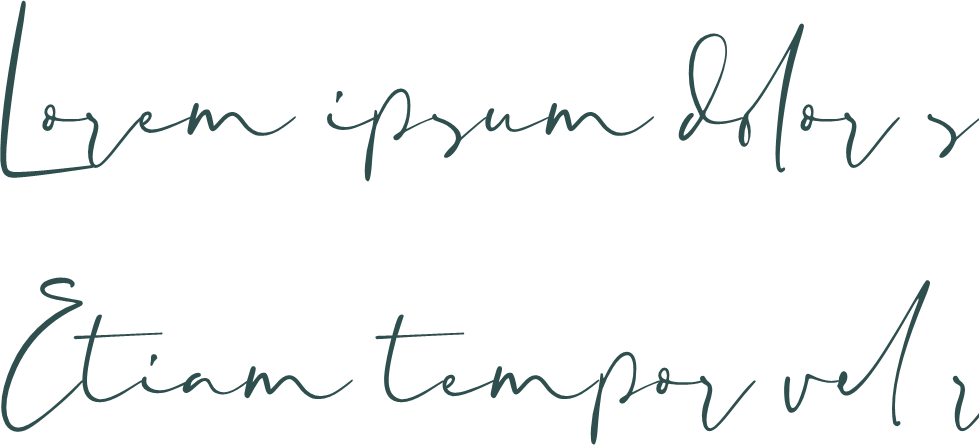 Lorem ipsum dolor s
Etiam tempor vel r